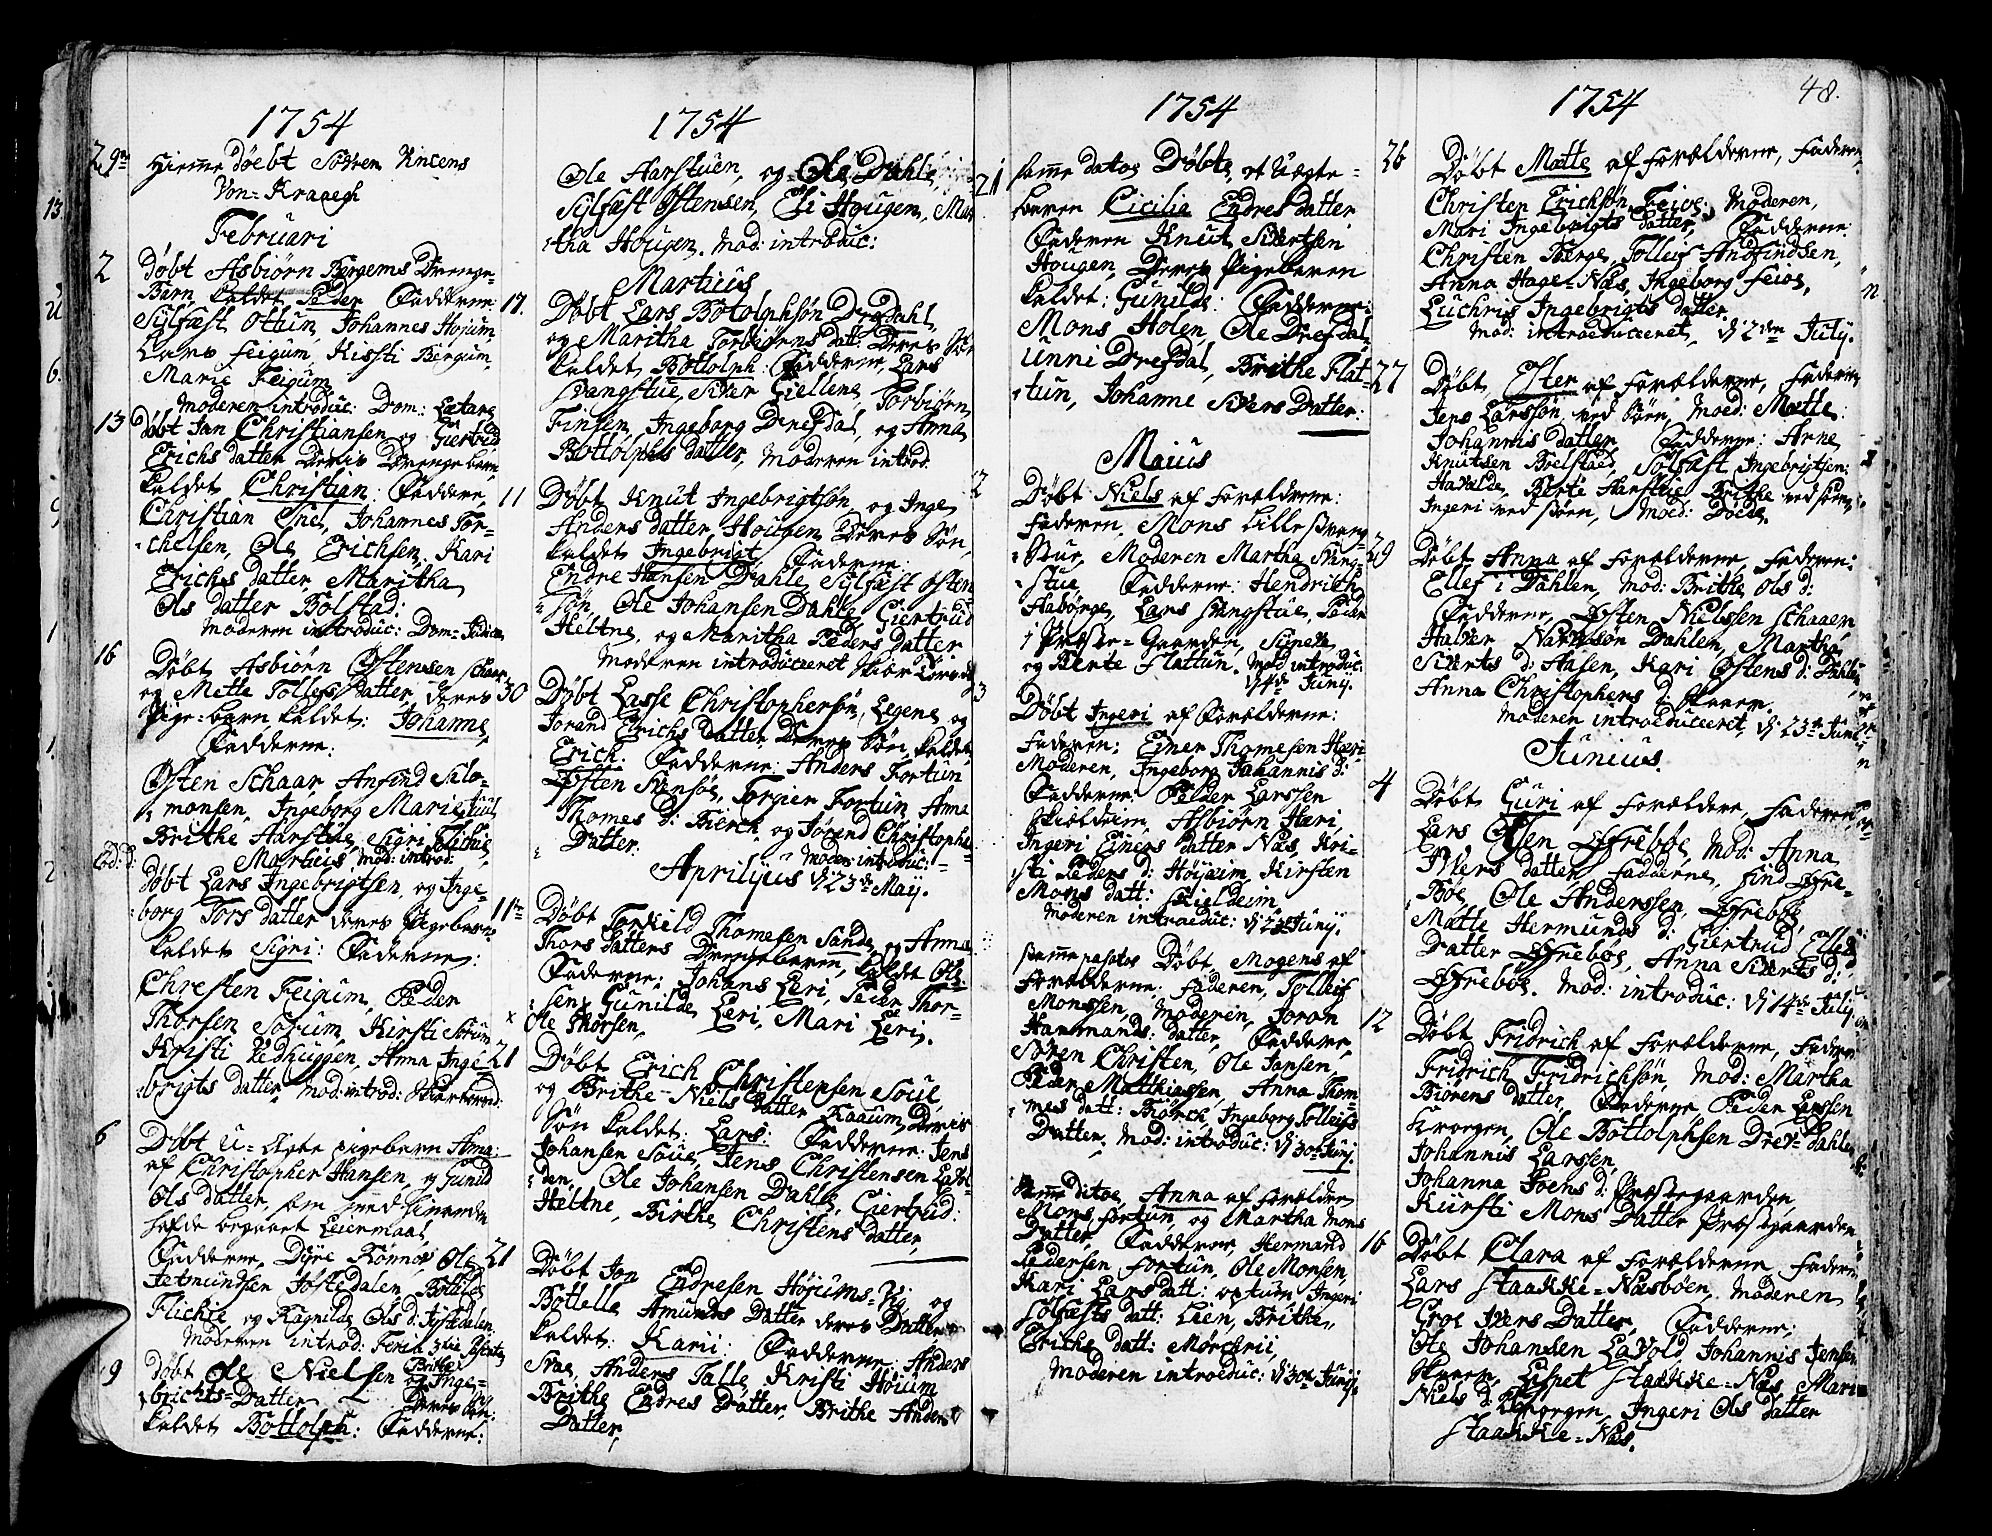 1754
29de Hjemme döebt Sören Vncens
Von Kraaegh
Februari
2 Döbt Asbiörn Bergems Drenge-
Barn, kaldet Peder Fadderne:
Sylfæst Ottum, Johannes Höjum
Lars Feigum, Kirsti Bergum,
Marie Feigum
Moderen introduc: Dom: Lætare
13 Döbt Jan Christiansen og Giertrud
Erichs datter Deris Drengebarn
kaldet Christian: Faddere
Christian Snel, Johannes Tor-
chelsen, Ole Erichsen, Kari
Erichs datter, Maritha
Ols datter Bolstad:
Moderen introduc: Dom: Judica
16 Döbt Asbiörn Östensen Schaar
og Mette Tollefs datter, deres
Pige-barn kaldet: Johanne,
Fadderne:
Östen Schaar Anfind Salo-
monsen, Ingeborg Marie
Brithe Harstue, Sigri
Martius Mod: introd:
Eod: d: Döbt Lars Ingebrigtsen, og Inge-
borg Tors datter deres Pigebarn
kaldet Sigri: Fadderne:
Chresten Feigum, Peder
Thorsen Sörum, Kirsti Sörum
Kristi Vedhuggen, Anna Inge-
brigts datter, Mod: introd:
6 Döbt U-ægte pigebarn Anna:
af Christopher Hansen, og Gunild
Ols datter, som med hinanden
hafde begaaet Leiermaal,
Fadderne, Dyre Rönnei, Ole
Jetmundsen Jostedalen, Botilde
Flickie, og Ragnilde Ols d: Jostedalen
Moderen introd: Feria 3tia
9 Döbt Ole Nielsen og Brithe Inge-
brichts-Datter Deres Sön:
kaldet Bottolph: Fadderne:
1754
Ole Harstuen, og Ole Dahle,
Sylfæst Östensen, Eli Hougen, Mar-
tha Hougen. Mod: introduc:
Martius
17. Döbt Lars Botolphsön Drægdahl,
og Maritha Torbiörns datt: Deres Sön
kaldet Bottolph: Fadderne Lars
Svangstue, Siver Giellene, Torbiörn
Finsen, Ingeborg Dresdal, og Anna
Bottolphs datter, Moderen introd.
11 Döbt Knut Ingebrigtsön, og Inge
Anders datter Hougen Deres Sön,
kaldet Ingebrigt, Fadderne:
Endre Hansen Dahle, Sylfæst Östen-
sön, Ole Johansen Dahle, Giertrud
Heltne, og Maritha Peders datter
Moderen introduceeret
30 Döbt Lasse Christophersön, Legene og
Jorand Erichs datter, Deres Sön, kaldet
Erich: Fadderne: Anders Fortun
Östen Hansön, Torgier Fortun, Anna
Thomes d: Bierck, og Jörend Christophe-
Datter. Moder introduc:
Aprilius d 23de Maij.
11te Döbt Torkild Thomesen Sande, og Anna
Thors datters Drengebarn, kaldet Ole
Fadderne: Johans Leri, Peder Thor-
sen, Gunilde Leri, Mari Leri,
Ole Thorsen,
21 Döbt Erich Christensen Soue,
og Brithe Niels datter Kaaum, Deris
Sön kaldet: Lars: Fadderne: Jens
Johansen Soue, Jens Christensen Lavol-
den, Ole Johansen Dahle, Giertrud:
Heltne, Birthe Christens datter,
21 Döbt Jon Endresen Höjums-Vig og
Bottelle Amunds datter deres datter
kaldet: Karii: Fadderne: Anders
Svae, Anders Talle, Kristi Höjum
Brithe Endres datter, Brithe Anders
Datter,
1754
21 Samme datos Döbt, et Uægte-
barn Cicilia Endres datter
Faderen Knut Sivertsen
Hougen, Deres Pigebaren
kaldet: Gunilde: Fadderne:
Mons Holen, Ole Dresdal
Unni Dresdal, Brithe Flat-
tun, Johanne Sivers Datter:
Maius
2 Döbt Niels af Forældrene:
Faderen, Mons Lille Svang-
Stue, Moderen Martha Svang-
stue Fadderne: Hendrich
Haborge, Lars Svangstue, Peder
i Præste-Gaarden, Sunneve
og Berte Flattun. Mod introduc:
d 4de Junij.
3 Döbt Ingeri af Forældrene:
Faderen: Einer Thomesen Hæri
Moderen, Ingeborg Johannis d:
Fadderne: Peder Larssen
Skieldeim, Asbiörn Hæri,
Ingeri Einers datter Næs, Kri-
sti Peders d: Höjheim, Kirsten
Mons datt: Kieldeim
Moderen introeduc: d 23de Junij.
Samme datos Döbt Mogens af
Forældrene: Faderen, Tolleif
Monssen, Moderen, Joran
Hammands datter, Faddere,
Sören Christen, Ole Jansen,
Peder Matthiassen, Anna Thom-
mes datt: Biörch, Ingeborg Tolleifs
Datter, Mod: introduc: d 30te Junij.
Samme ditoe, Anna af Forældre
Mons Fortun, og Martha Mons
Datter, Fadderne, Hermand
Pedersen Fortun, Ole Monsen,
Kari Lars datt: optun, Ingeri
Solfæsts datt: Lien, Brithe,
Erichs datt: Mörchrii,
Moderen introeduc: d 30te Junij
1754 48.
26 Döbt Mette af Forælderne, Faderen
Christen Erichsön Feioe: Moderen,
Mari Ingebrigts datter, Fadderne:
Christen Berge, Tolleif Andfindsen,
Anna Hage-Næs, Ingeborg Feios,
Luchris Ingebrigts datter,
Mod: introeduceeret, d 2den Julij.
27 Döbt Ester af Forælderne, Faderen
Jens Larssön ved Söen, Moed: Mætte
Johannis datter Fadderne: Arne
Knutsen Boelstaed, Solfæst Ingebrigtsen:
Havalde, Berte Harstue, Brithe ved Söen,
Ingeri ved Söen, Moed: Döede.
29 Döbt Anna af Forælderne, Faderen:
Ellef i Dahlen, Mod: Brithe Ols d:
Fadderne, Östen Nielssen Schaaen
Halver Dahlen, Martha
Siverts d: Hasen, Kari Östens d: Dahlen,
Anna Christophers d: Skaaen.
Moderen introeduceeret, d 23de Junij
Junius.
4 Döbt Guri af Forældere, Faderen,
Lars Olsen Öfrebøe, Mod: Anna
Ivers datter Fadderne, Find Öfre-
Böe, Ole Anderssen, Öfrebøe
Mætte Hermunds d: Giertrud Ellefs
Datter Öfrebøe, Anna Siverts d:
Öfrebøe. Mod: introduc: d 14de Julij.
12 Döbt Fridrich af Forælderne, Faderen
Fridrich Fridrichsön, Mod: Martha
Biörens datter, Fadderne, Peder Larssen
Kroegen, Ole Bottolphsen Drev-Dahlen
Johannis Larssen,
Johanna Joens d: Præstegaarden,
Kirsti Mons Datter Præstgaarden
16 Döbt Clara af Forælderne Faderen
Lars Staakke-Næsböen, Moderen
Groe Ivers Datter, Fadderne:
Ole Johansen Lavold, Johannis Jensen
Skaaen, Lispet Staakke-Næs, Mari
Niels d: Kroegen, Ingeri Ols datter
Staakke-Næs.